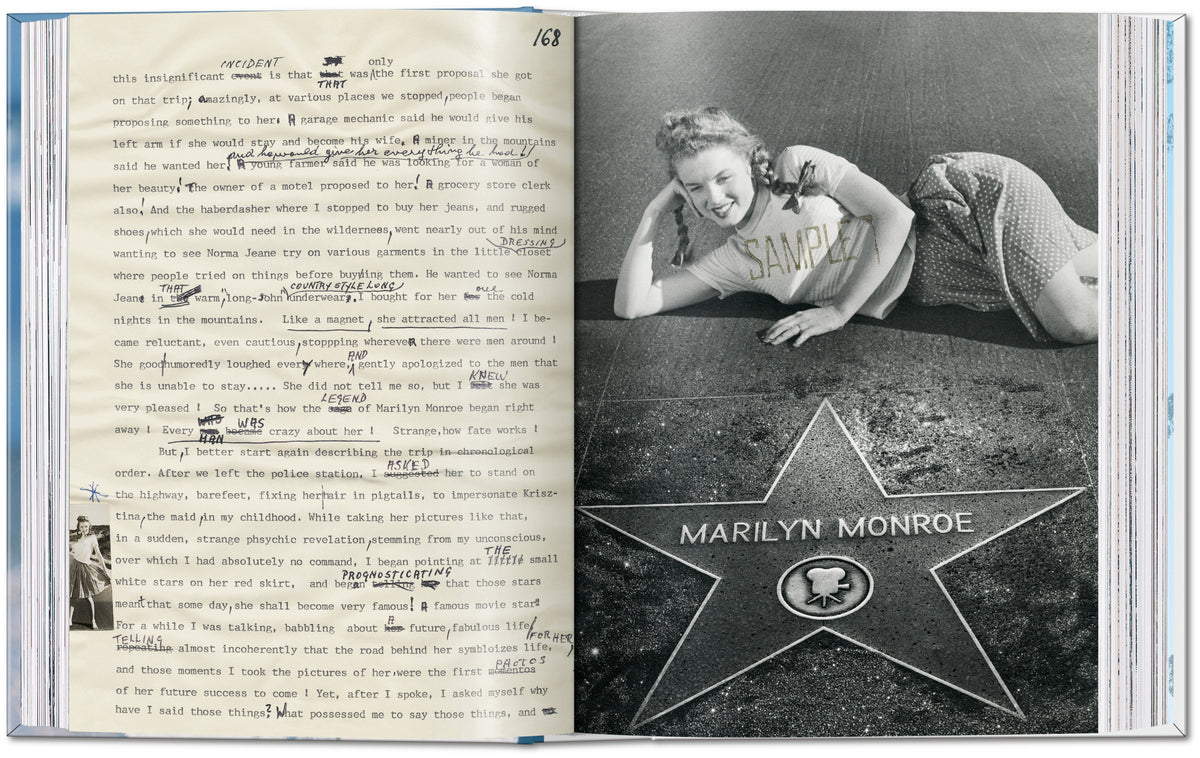 168
INCIDENT only
this insignificant event is that that was the first proposal she got
THAT
on that trip; Amazingly, at various places we stopped, people began
proposing something to her. A garage mechanic said he would give his
left arm if she would stay and become his wife. A miner in the mountains
and he would give her everything he had!
said he wanted her! A young farmer said he was looking for a woman of
her beauty! The owner of a motel proposed to her! A grocery store clerk
also! And the haberdasher where I stopped to buy her jeans, and rugged
shoes, which she would need in the wilderness, went nearly out of his mind
DRESSING
wanting to see Norma Jeane try on various garments in the little closet
where people tried on things before buying them. He wanted to see Norma
THAT COUNTRY STYLE LONG one
Jeane in warm, "long-John" underwear. I bought for her for the cold
nights in the mountains. Like a magnet, she attracted all men ! I be-
came reluctant, even cautious, stoppping wherever there were men around !
AND
She goodhumoredly loughed every where, gently apologized to the men that
KNEW
she is unable to stay..... She did not tell me so, but I felt she was
LEGEND
very pleased ! So that's how the saga of Marilyn Monroe began right
WAS WAS
away ! Every became crazy about her ! Strange, how fate works !
MAN
But, I better start again describing the trip in chronological
ASKED
order. After we left the police station, I suggested her to stand on
the highway, barefeet, fixing her hair in pigtails, to impersonate Krisz-
tina, the maid in my childhood. While taking her pictures like that,
in a sudden, strange phsychic revelation, stemming from my unconscious,
THE
over which I had absolutely no command, I began pointing at little small
PROGNOSTICATING
white stars on her red skirt, and began telling that those stars
meant that some day, she shall become very famous! A famous movie star!
A
For a while I was talking, babbling about her future, fabulous life!
TELLING FOR HER,
repeating almost incoherently that the road behind her symbloizes life,
PHOTOS
and those moments I took the pictures of her, were the first momentos
of her future success to come ! Yet, after I spoke, I asked myself why
have I said those things? What possessed me to say those things, and
SAMPLE
MARILYN MONROE